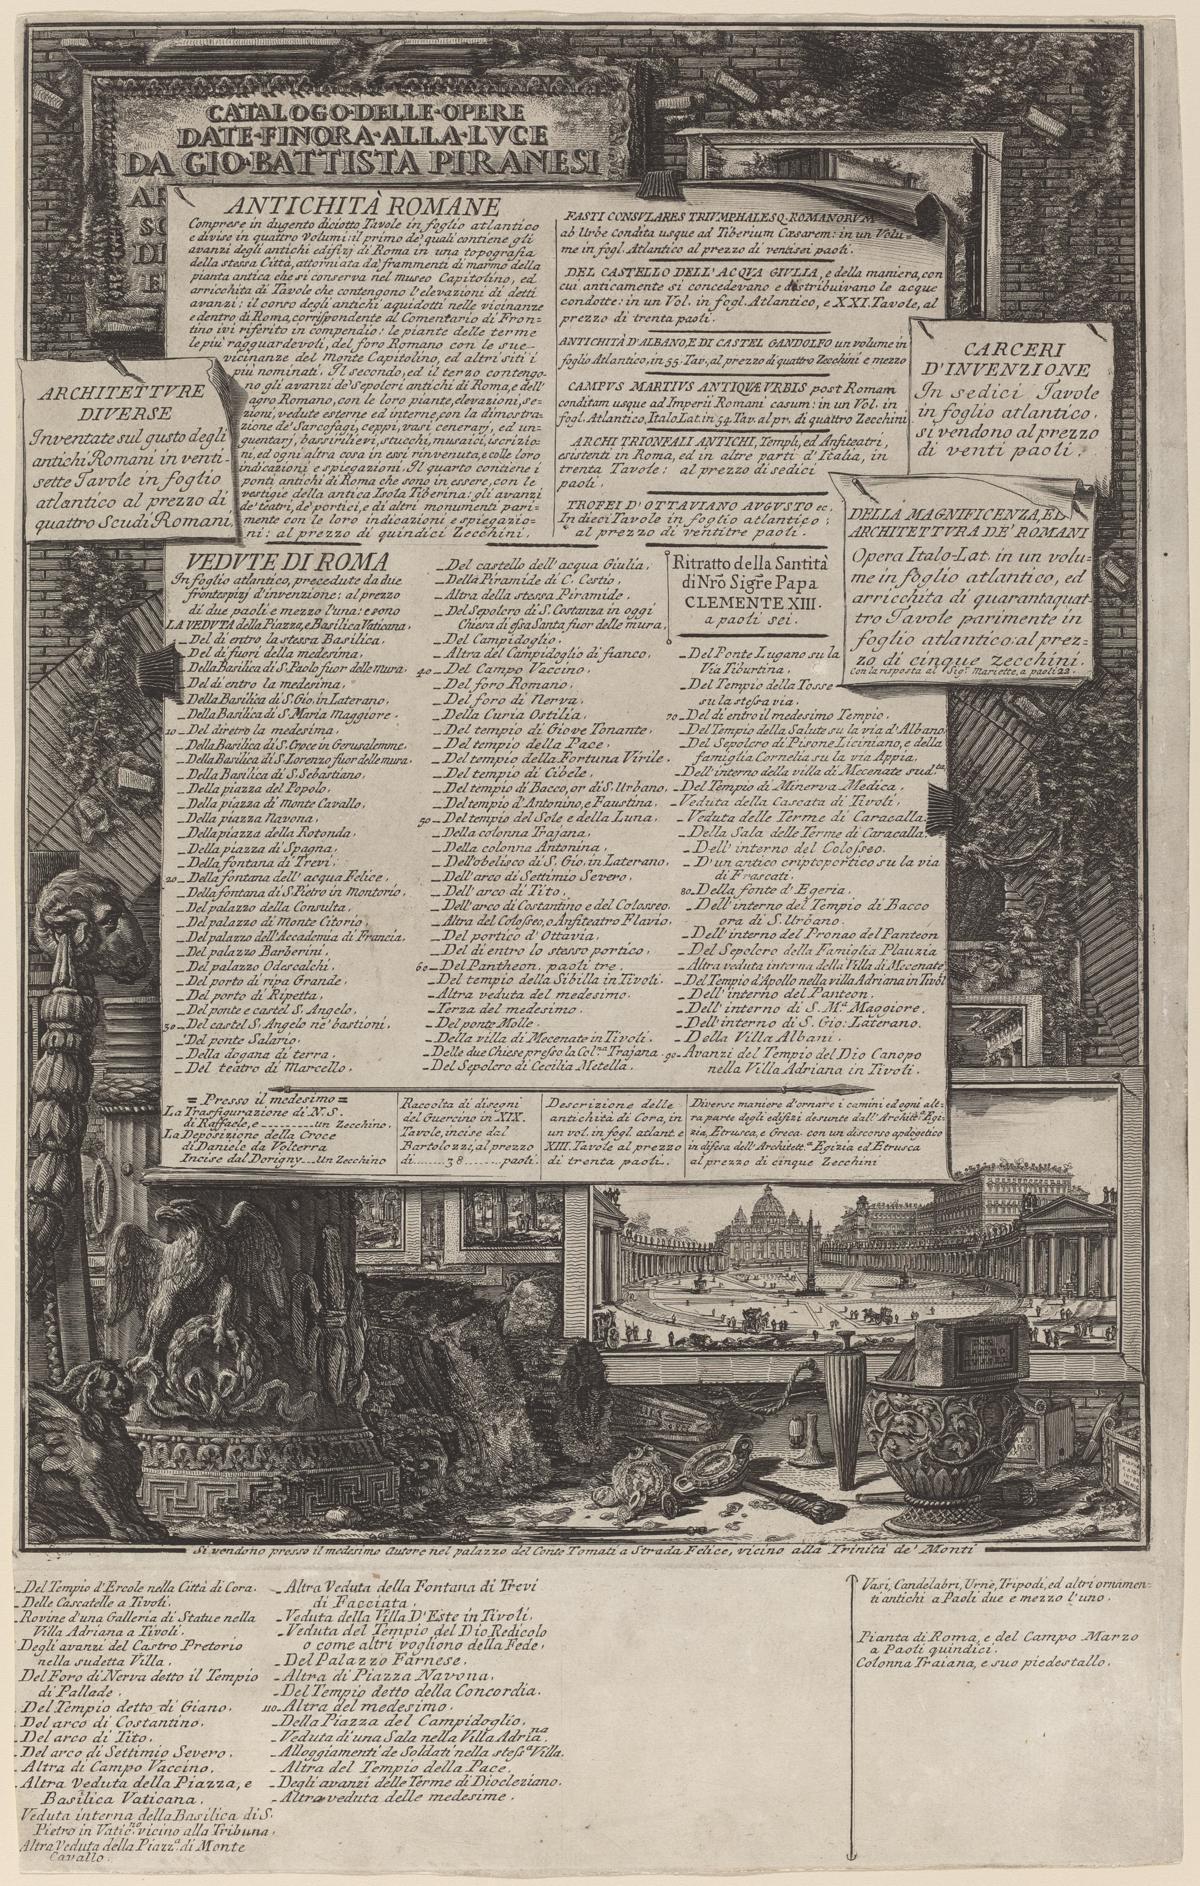 CATALOGO·DELLE·OPERE
DATE·FINORA·ALLA·LVCE
DA GIO·BATTISTA PIRANESI
ANTICHITÀ ROMANE
Comprese in dugento diciotto Tavole in foglio atlantico
e divise in quattro Volumi: il primo de' quali contiene gli
avanzi degli antichi edifizj di Roma in una topografia
della stessa Città, attorniata da' frammenti di marmo della
pianta antica che si conserva nel museo Capitolino, ed
arricchita di Tavole che contengono l'elevazioni di detti
avanzi: il corso degli antichi aquidotti nelle vicinanze
e dentro di Roma, corrispondente al Comentario di Fron-
tino ivi riferito in compendio: le piante delle terme
le più ragguardevoli, del foro Romano con le sue
vicinanze del Monte Capitolino, ed altri siti i
più nominati. Il secondo, ed il terzo contengo-
no gli avanzi de' Sepolcri antichi di Roma, e dell'
agro Romano, con le loro piante, elevazioni, se-
zioni, vedute esterne ed interne, con la dimostra-
zione de' Sarcofagi, ceppi, vasi cenerarj, ed un-
guentarj, bassirilievi, stucchi, musaici, iscrizio-
ni, ed ogni altra cosa in essi rinvenuta, e colle loro
indicazioni e spiegazioni. Il quarto contiene i
ponti antichi di Roma che sono in essere, con le
vestigie della antica Isola Tiberina: gli avanzi
de' teatri, de' portici, e di altri monumenti pari-
mente con le loro indicazioni e spiegazio-
ni: al prezzo di quindici Zecchini.
FASTI CONSVLARES TRIVMPHALESQ. ROMANORVM
ab Urbe condita usque ad Tiberium Cæsarem: in un Volu-
me in fogl. Atlantico al prezzo di ventisei paoli.
DEL CASTELLO DELL'ACQVA GIVLIA, e della maniera, con
cui anticamente si concedevano e distribuivano le acque
condotte: in un Vol. in fogl. Atlantico, e XXI. Tavole, al
prezzo di trenta paoli.
ANTICHITÀ D'ALBANO, E DI CASTEL GANDOLFO un volume in
foglio Atlantico, in 55. Tav., al prezzo di quattro Zecchini e mezzo
CAMPVS MARTIVS ANTIQVÆ VRBIS post Romam
conditam usque ad Imperii Romani casum: in un Vol. in
fogl. Atlantico, Italo Lat. in 54. Tav. al pr. di quattro Zecchini
ARCHI TRIONFALI ANTICHI, Templi, ed Anfiteatri,
esistenti in Roma, ed in altre parti d'Italia, in
trenta Tavole: al prezzo di sedici
paoli.
TROFEI D'OTTAVIANO AVGVSTO ec.
In dieci Tavole in foglio atlantico;
al prezzo di ventitre paoli.
ARCHITETTVRE
DIVERSE
Inventate sul gusto degli
antichi Romani in venti-
sette Tavole in foglio
atlantico al prezzo di
quattro Scudi Romani.
CARCERI
D'INVENZIONE
In sedici Tavole
in foglio atlantico.
si vendono al prezzo
di venti paoli.
DELLA MAGNIFICENZA, ED
ARCHITETTVRA DE' ROMANI
Opera Italo-Lat. in un volu-
me in foglio atlantico, ed
arricchita di quarantaquat-
tro Tavole parimente in
foglio atlantico: al prez-
zo di cinque zecchini.
con la risposta al Sigr. Mariette, a paoli 22.
VEDVTE DI ROMA
In foglio atlantico, precedute da due
frontespizj d'invenzione: al prezzo
di due paoli e mezzo l'una: e sono
LA VEDVTA della Piazza, e Basilica Vaticana.
Del di entro la stessa Basilica.
Del di fuori della medesima.
Della Basilica di S. Paolo fuor delle mura.
Del di entro la medesima.
Della Basilica di S. Gio. in Laterano.
Della Basilica di S. Maria Maggiore.
10 Del diretro la medesima.
Della Basilica di S. Croce in Gerusalemme.
Della Basilica di S. Lorenzo fuor delle mura.
Della Basilica di S. Sebastiano.
Della piazza del Popolo.
Della piazza di Monte Cavallo.
Della piazza Navona.
Della piazza della Rotonda.
Della piazza di Spagna.
Della fontana di Trevi.
20 Della fontana dell'acqua Felice.
Della fontana di S. Pietro in montorio.
Del palazzo della Consulta.
Del palazzo di Monte Citorio.
Del palazzo dell'Accademia di Francia.
Del palazzo Barberini.
Del palazzo Odescalchi.
Del porto di ripa Grande.
Del porto di Ripetta.
Del ponte e castel S. Angelo.
30 Del castel S. Angelo ne' bastioni.
Del ponte Salario.
Della dogana di terra.
Del teatro di Marcello.
Del castello dell'acqua Giulia.
Della Piramide di C. Cestio.
Altra della stessa Piramide.
Del Sepolcro di S. Costanza in oggi
Chiesa di essa Santa fuor delle mura.
Del Campidoglio.
Altra del Campidoglio di fianco.
40 Del Campo Vaccino.
Del foro Romano.
Del foro di Nerva.
Della Curia Ostilia.
Del tempio di Giove Tonante.
Del tempio della Pace.
Del tempio della Fortuna Virile.
Del tempio di Cibele.
Del tempio di Bacco, or di S. Urbano.
Del tempio d'Antonino, e Faustina.
50 Del tempio del Sole e della Luna.
Della colonna Trajana.
Della colonna Antonina.
Dell'obelisco di S. Gio. in Laterano.
Dell'arco di Settimio Severo.
Dell'arco di Tito.
Dell'arco di Costantino e del Colosseo.
Altra del Colosseo, o Anfiteatro Flavio.
Del portico d'Ottavia.
Del di entro lo stesso portico.
60 Del Pantheon. paoli tre.
Del tempio della Sibilla in Tivoli.
Altra veduta del medesimo.
Terza del medesimo.
Del ponte Molle.
Della villa di Mecenate in Tivoli.
Delle due Chiese presso la Colna. Trajana.
Del Sepolcro di Cecilia Metella.
Ritratto della Santità
di Nro Sigre Papa
CLEMENTE XIII.
a paoli sei.
Del Ponte Lugano su la
Via Tiburtina.
Del Tempio della Tosse
su la stessa via.
70 Del di entro il medesimo Tempio.
Del Tempio della Salute su la via d'Albano
Del Sepolcro di Pisone Liciniano, e della
famiglia Cornelia su la via Appia.
Dell'interno della villa di Mecenate sud.ta
Del Tempio di Minerva Medica.
Veduta della Cascata di Tivoli.
Veduta delle Terme di Caracalla.
Della Sala delle Terme di Caracalla.
Dell'interno del Colosseo.
D'un antico criptoportico su la via
di Frascati.
80 Della fonte d'Egeria.
Dell'interno del Tempio di Bacco
ora di S. Urbano.
Dell'interno del Pronao del Panteon
Del Sepolcro della Famiglia Plauzia
Altra veduta interna della Villa di Mecenate
Del Tempio d'Apollo nella villa Adriana in Tivoli
Dell'interno del Panteon.
Dell'interno di S. Ma. Maggiore.
Dell'interno di S. Gio. Laterano.
Della Villa Albani.
90 Avanzi del Tempio del Dio Canopo
nella Villa Adriana in Tivoli.
= Presso il medesimo =
La Trasfigurazione di N. S.
di Raffaele, e ......... un Zecchino.
La Deposizione della Croce
di Daniele da Volterra
Incise dal Dorigny .... un Zecchino
Raccolta di disegni
del Guercino in XIX.
Tavole, incise dal
Bartolozzi, al prezzo
di ...... 38 ...... paoli.
Descrizione delle
antichità di Cora, in
un vol. in fogl. atlant. e
XIII. Tavole al prezzo
di trenta paoli.
Diverse maniere d'ornare i camini ed ogni al-
tra parte degli edifizj desunte dall'Architta. Egi-
zia, Etrusca, e Greca. con un discorso apologetico
in difesa dell'Architta. Egizia ed Etrusca
al prezzo di cinque Zecchini
Si vendono presso il medesimo Autore nel palazzo del Conte Tomati a Strada Felice, vicino alla Trinità de' Monti
Del Tempio d'Ercole nella Città di Cora.
Delle Cascatelle a Tivoli.
Rovine d'una Galleria di Statue nella
Villa Adriana a Tivoli.
Degli avanzi del Castro Pretorio
nella sudetta Villa.
Del Foro di Nerva detto il Tempio
di Pallade.
Del Tempio detto di Giano.
Del arco di Costantino.
Del arco di Tito.
Del arco di Settimio Severo.
Altra di Campo Vaccino.
Altra Veduta della Piazza, e
Basilica Vaticana.
Veduta interna della Basilica di S.
Pietro in Vaticno. vicino alla Tribuna.
Altra Veduta della Piazza. di Monte
Cavallo.
Altra Veduta della Fontana di Trevi
di Facciata.
Veduta della Villa D'Este in Tivoli.
Veduta del Tempio del Dio Redicolo
o come altri vogliono della Fede.
Del Palazzo Farnese.
Altra di Piazza Navona.
Del Tempio detto della Concordia.
110 Altra del medesimo.
Della Piazza del Campidoglio.
Veduta di una Sala nella Villa Adriana
Alloggiamenti de Soldati nella stessa Villa.
Altra del Tempio della Pace.
Degli avanzi delle Terme di Diocleziano.
Altra veduta delle medesime.
Vasi, Candelabri, Urne, Tripodi, ed altri ornamen-
ti antichi a Paoli due e mezzo l'uno.
Pianta di Roma, e del Campo Marzo
a Paoli quindici.
Colonna Traiana, e suo piedestallo.